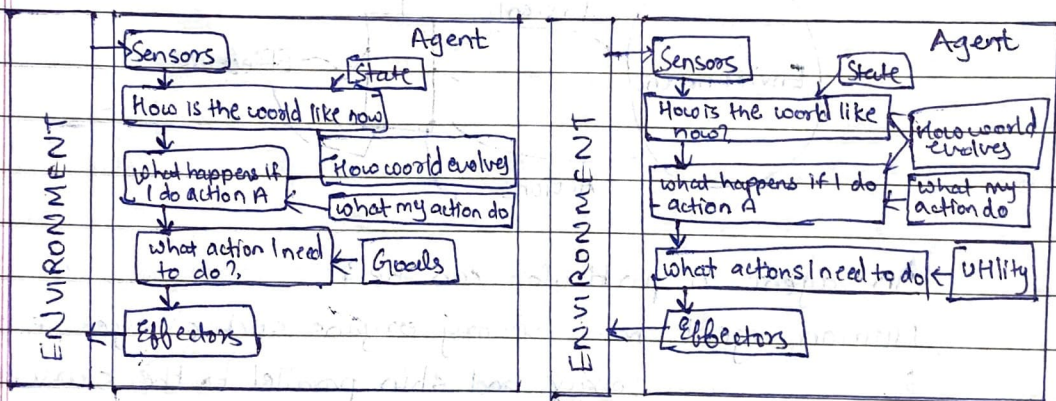 ENVIRONMENT
Agent
Sensors
State
How is the world like now
How world evolves
What happens if
I do action A
what my action do
what action I need
to do?,
Goals
Effectors
ENVIRONMENT
Agent
Sensors
State
How is the world like
now?
How world
evolves
what happens if I do
action A
what my
action do
what actions I need to do
Utility
Effectors